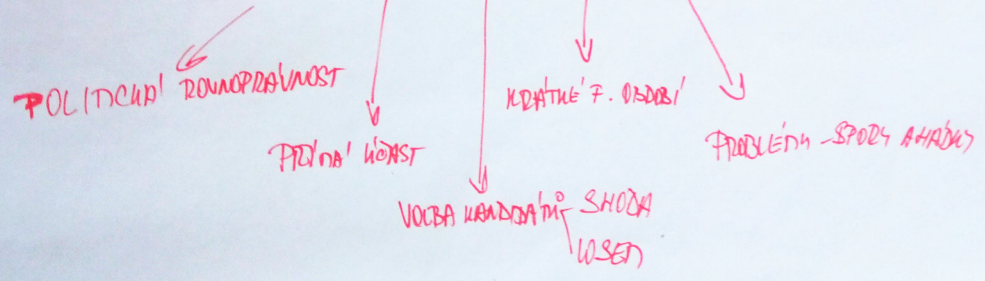 POLITICKÁ ROVNOPRÁVNOST
PŘÍMÁ ÚČAST
VOLBA KANDIDÁTŮ - SHODA
LOSEM
KRÁTKÉ F. OBDOBÍ
PROBLÉMY - SPORY A HÁDKY